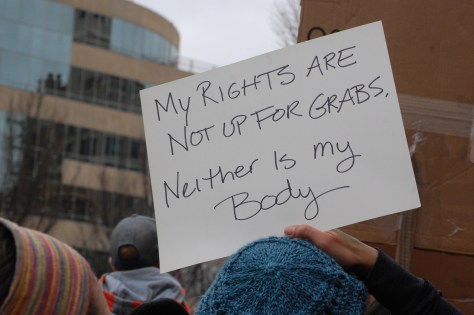 My RIGHTS ARE
NOT UP FOR GRABS.
Neither Is my
Body